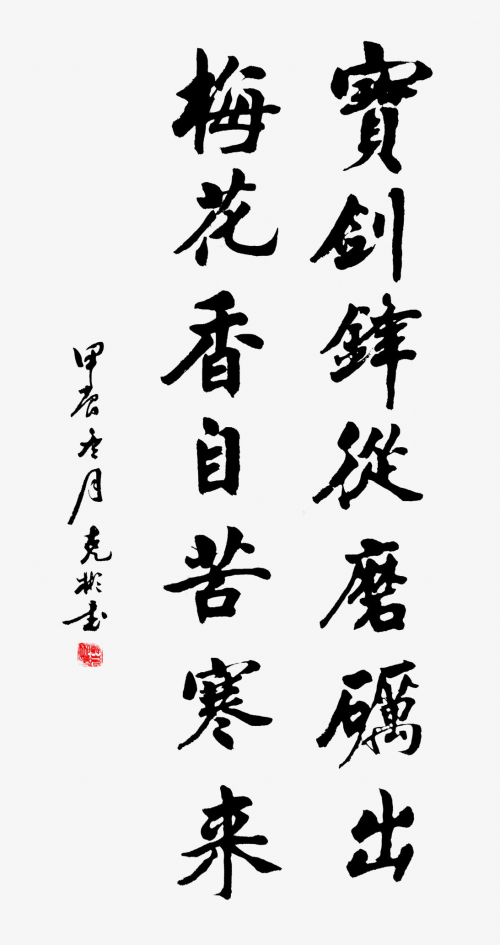 寶劍鋒從磨礪出
梅花香自苦寒来
甲辰冬月克彬书